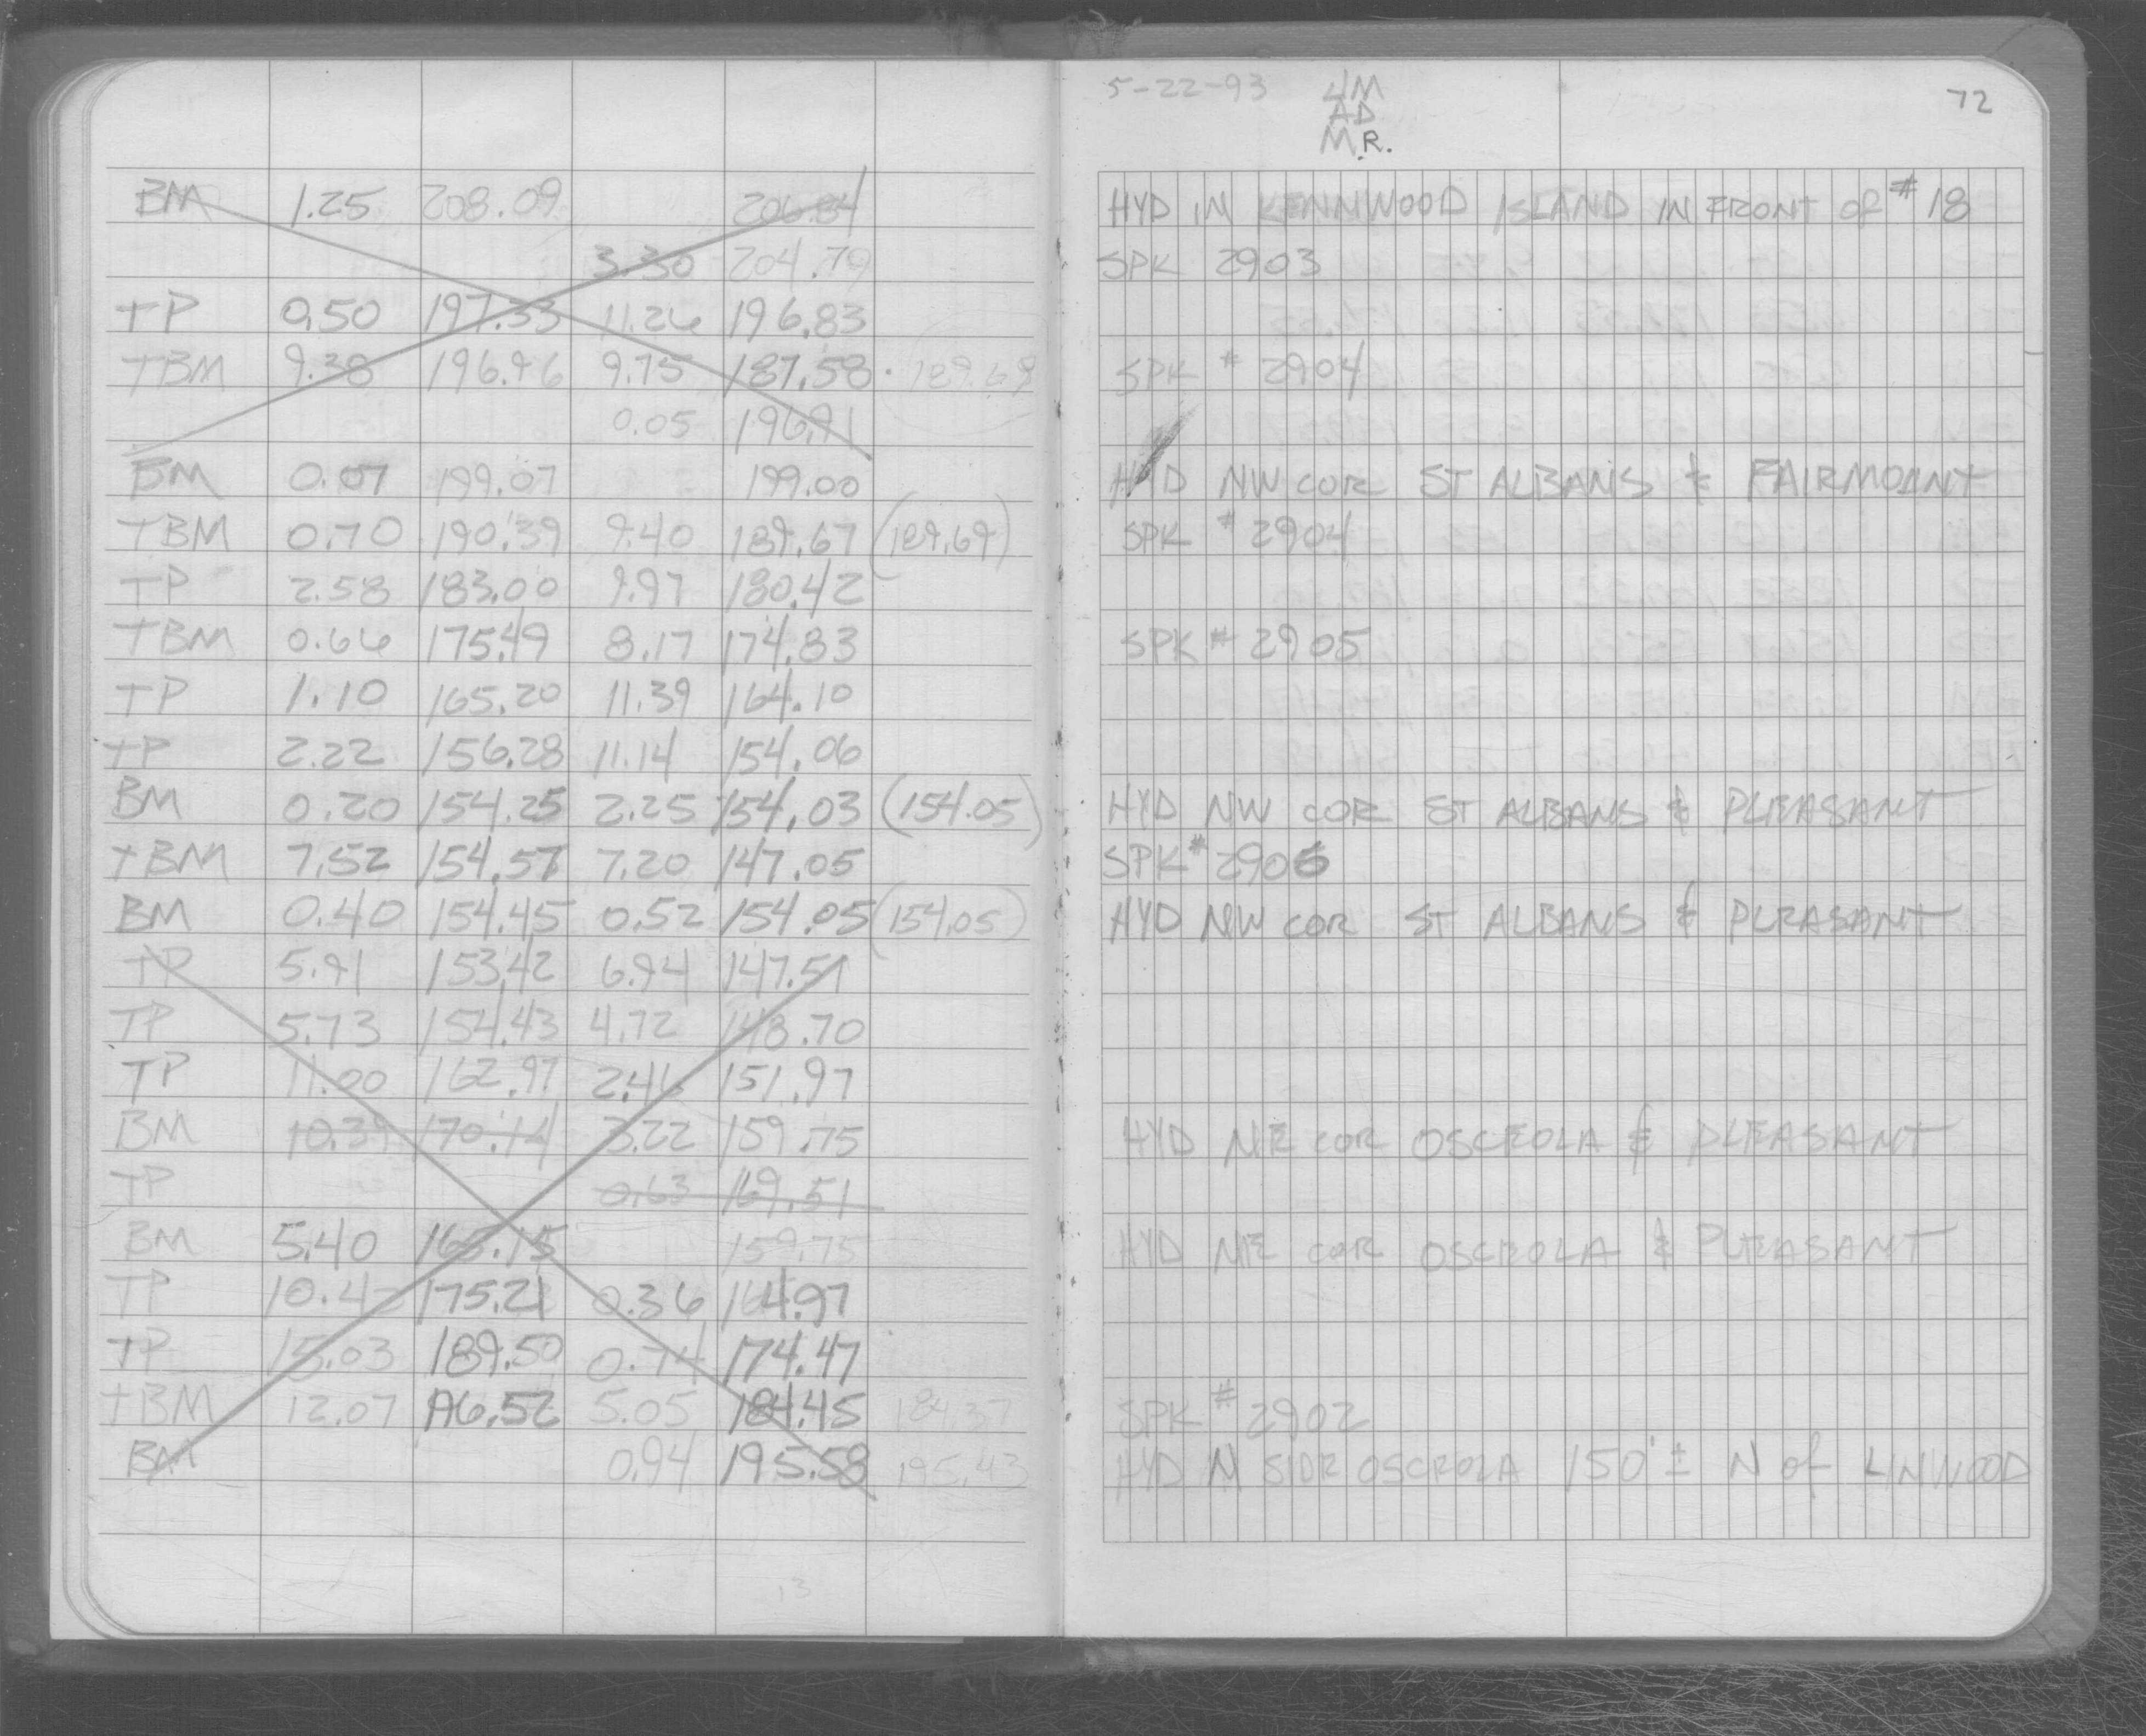 BM 1.25 208.09 206.84
3.30 204.79
TP 0.50 197.33 11.26 196.83
TBM 9.38 196.96 9.75 187.58 · 189.69
0.05 196.91
BM 0.07 199.07 199.00
TBM 0.70 190.39 9.40 189.67 (189.69)
TP 2.58 183.00 9.97 180.42
TBM 0.66 175.49 8.17 174.83
TP 1.10 165.20 11.39 164.10
TP 2.22 156.28 11.14 154.06
BM 0.20 154.25 2.25 154.03 (154.05)
TBM 7.52 154.57 7.20 147.05
BM 0.40 154.45 0.52 154.05 (154.05)
TP 5.91 153.42 6.94 147.51
TP 5.73 154.43 4.72 148.70
TP 11.00 162.97 2.46 151.97
BM 10.39 170.14 3.22 159.75
TP 0.63 169.51
BM 5.40 165.15 159.75
TP 10.42 175.21 0.36 164.97
TP 15.03 189.50 0.74 174.47
TBM 12.07 196.52 5.05 184.45 184.37
BM 0.94 195.58 195.43
5-22-93 JM
AD
M.R.
72
HYD IN KENNWOOD ISLAND IN FRONT of # 18
SPK 2903
SPK # 2904
HYD NW COR ST ALBANS & FAIRMOUNT
SPK # 2904
SPK # 2905
HYD NW COR ST ALBANS & PLEASANT
SPK # 2906
HYD NW COR ST ALBANS & PLEASANT
HYD NE COR OSCEOLA & PLEASANT
HYD NE COR OSCEOLA & PLEASANT
SPK # 2902
HYD N SIDE OSCEOLA 150' ± N of LINWOOD